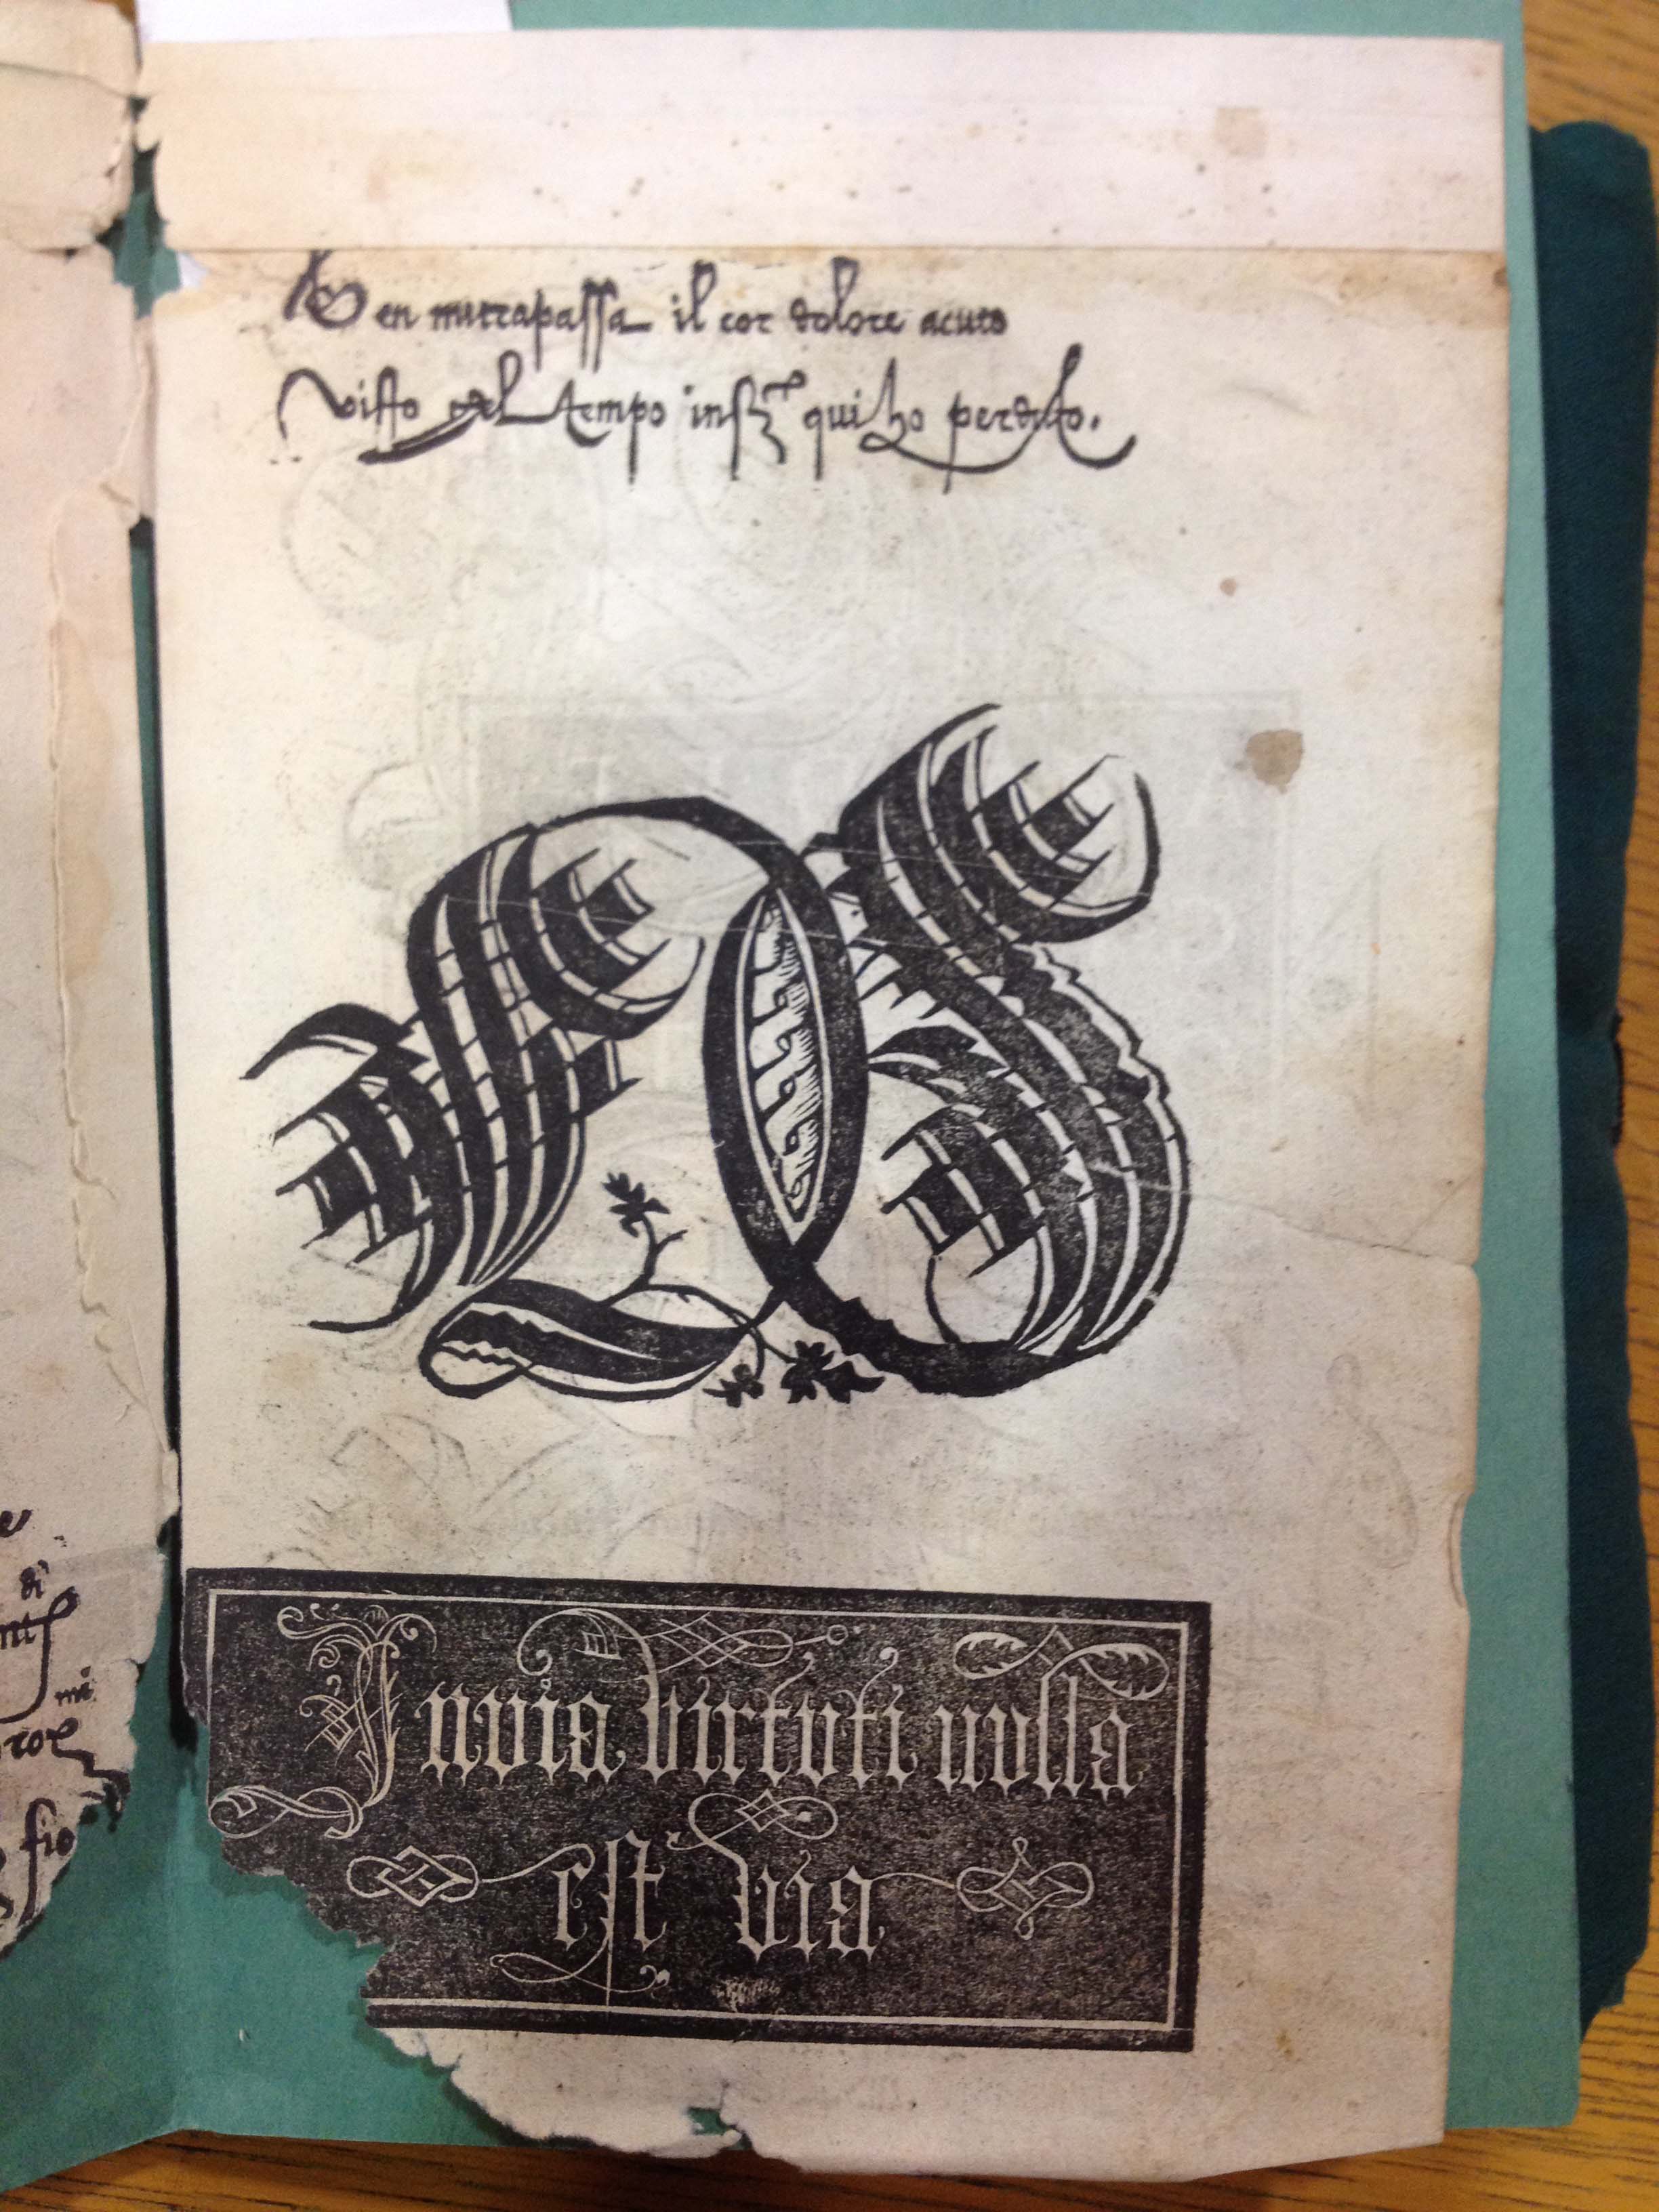 Ben mitrapassa il cor dolore acuto
visto tempo qui ho perduto.
Inuia virtuti nulla
est via
di
fio